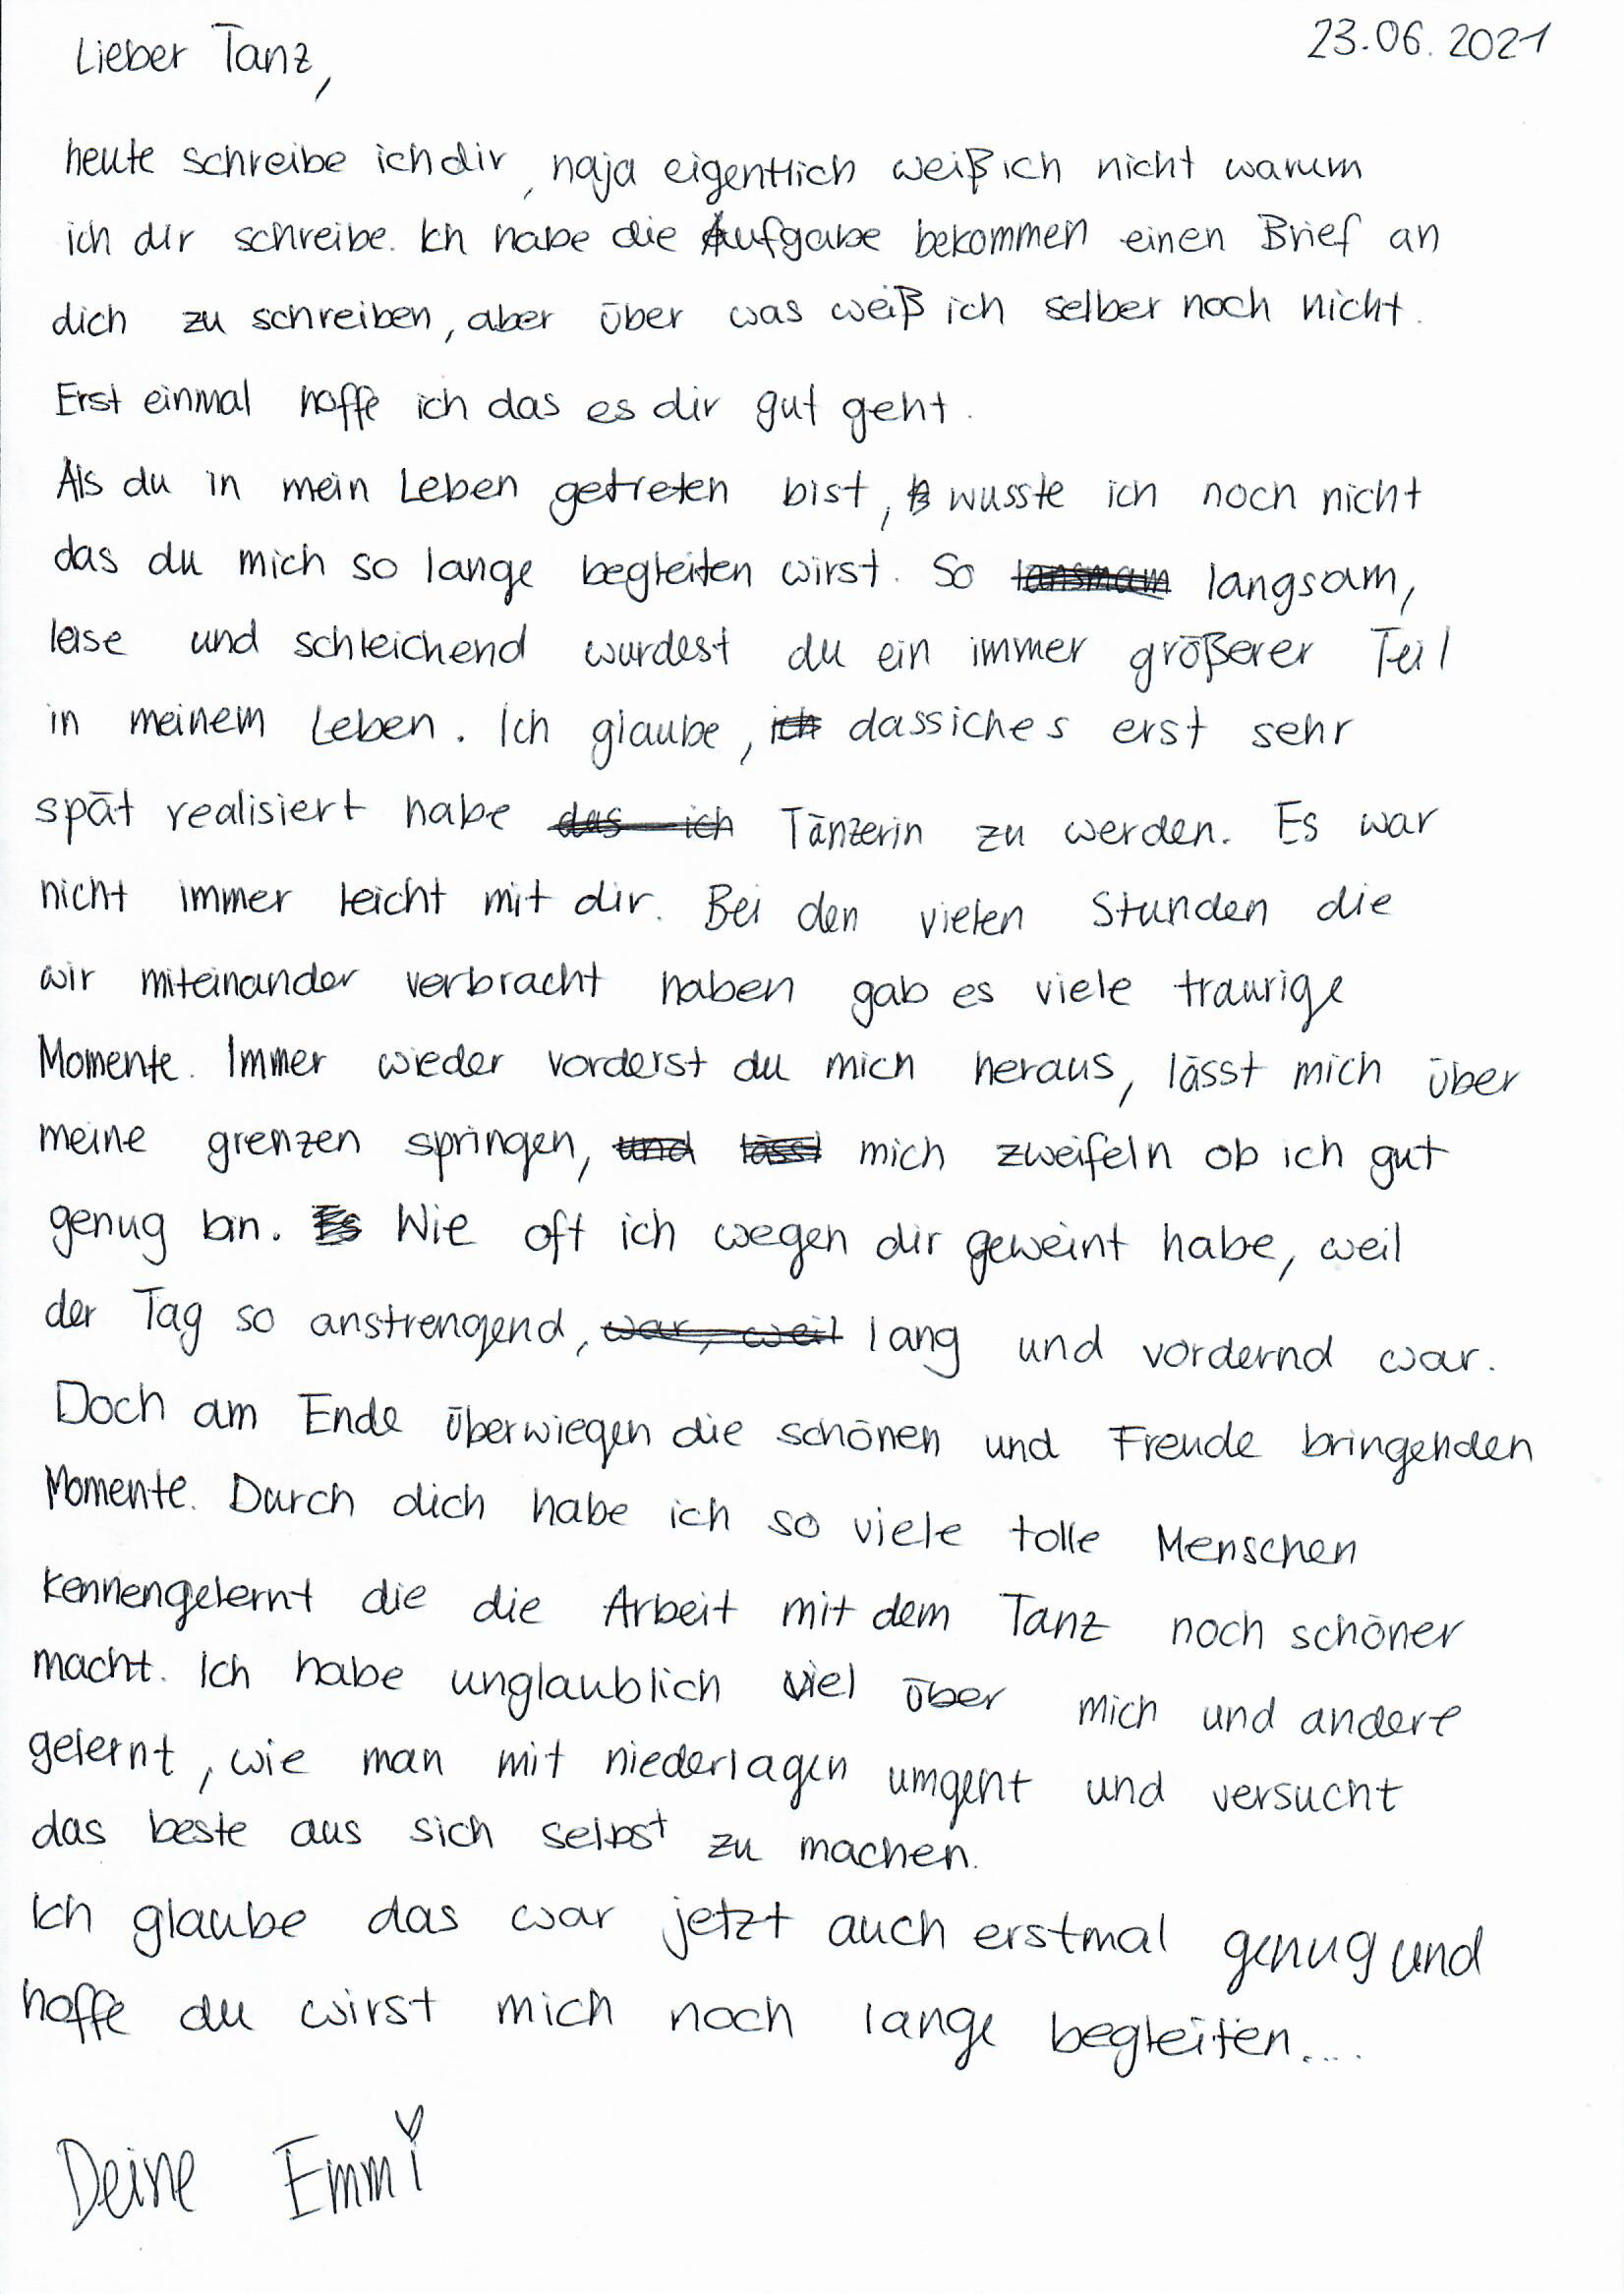 Lieber Tanz,
23.06.2021
heute schreibe ich dir, naja eigentlich weiß ich nicht warum
ich dir schreibe. Ich habe die Aufgabe bekommen einen Brief an
dich zu schreiben, aber über was weiß ich selber noch nicht.
Erst einmal hoffe ich das es dir gut geht.
Als du in mein Leben getreten bist, wusste ich noch nicht
das du mich so lange begleiten wirst. So langsam,
leise und schleichend wurdest du ein immer größerer Teil
in meinem Leben. Ich glaube, ich dass ich es erst sehr
spät realisiert habe das ich Tänzerin zu werden. Es war
nicht immer leicht mit dir. Bei den vielen Stunden die
wir miteinander verbracht haben gab es viele traurige
Momente. Immer wieder vorderst du mich heraus, lässt mich über
meine grenzen springen, und lässt mich zweifeln ob ich gut
genug bin. Es Wie oft ich wegen dir geweint habe, weil
der Tag so anstrengend, war, weil lang und vordernd war.
Doch am Ende überwiegen die schönen und Freude bringenden
Momente. Durch dich habe ich so viele tolle Menschen
kennengelernt die die Arbeit mit dem Tanz noch schöner
macht. Ich habe unglaublich viel über mich und andere
gelernt, wie man mit niederlagen umgeht und versucht
das beste aus sich selbst zu machen.
Ich glaube das war jetzt auch erstmal genug und
hoffe du wirst mich noch lange begleiten....
Deine Emmi